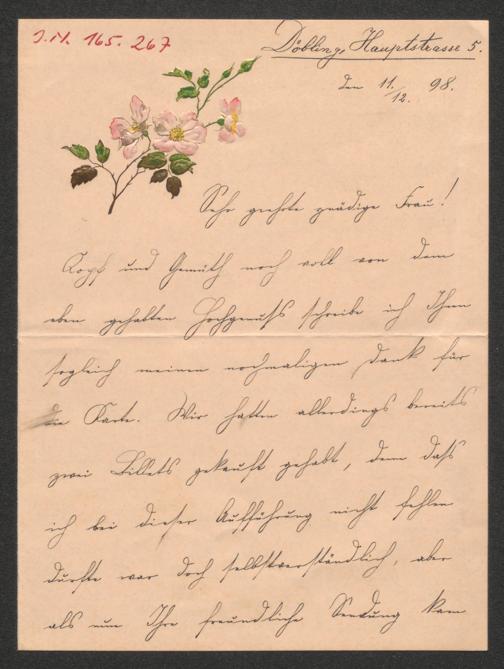 I.N. 165.267
Döbling, Hauptstrasse 5.
den 11/12. 98.
Sehr geehrte gnädige Frau!
Kopf und Gemüth noch voll von dem
eben gehabten Hochgenuß schreibe ich Ihnen
sogleich meinen nochmaligen Dank für
die Karte. Wir hatten allerdings bereits
zwei Billets gekauft gehabt, denn daß
ich bei dieser Aufführung nicht fehlen
durfte war doch selbstverständlich, aber
als nun Ihre freundliche Sendung kam